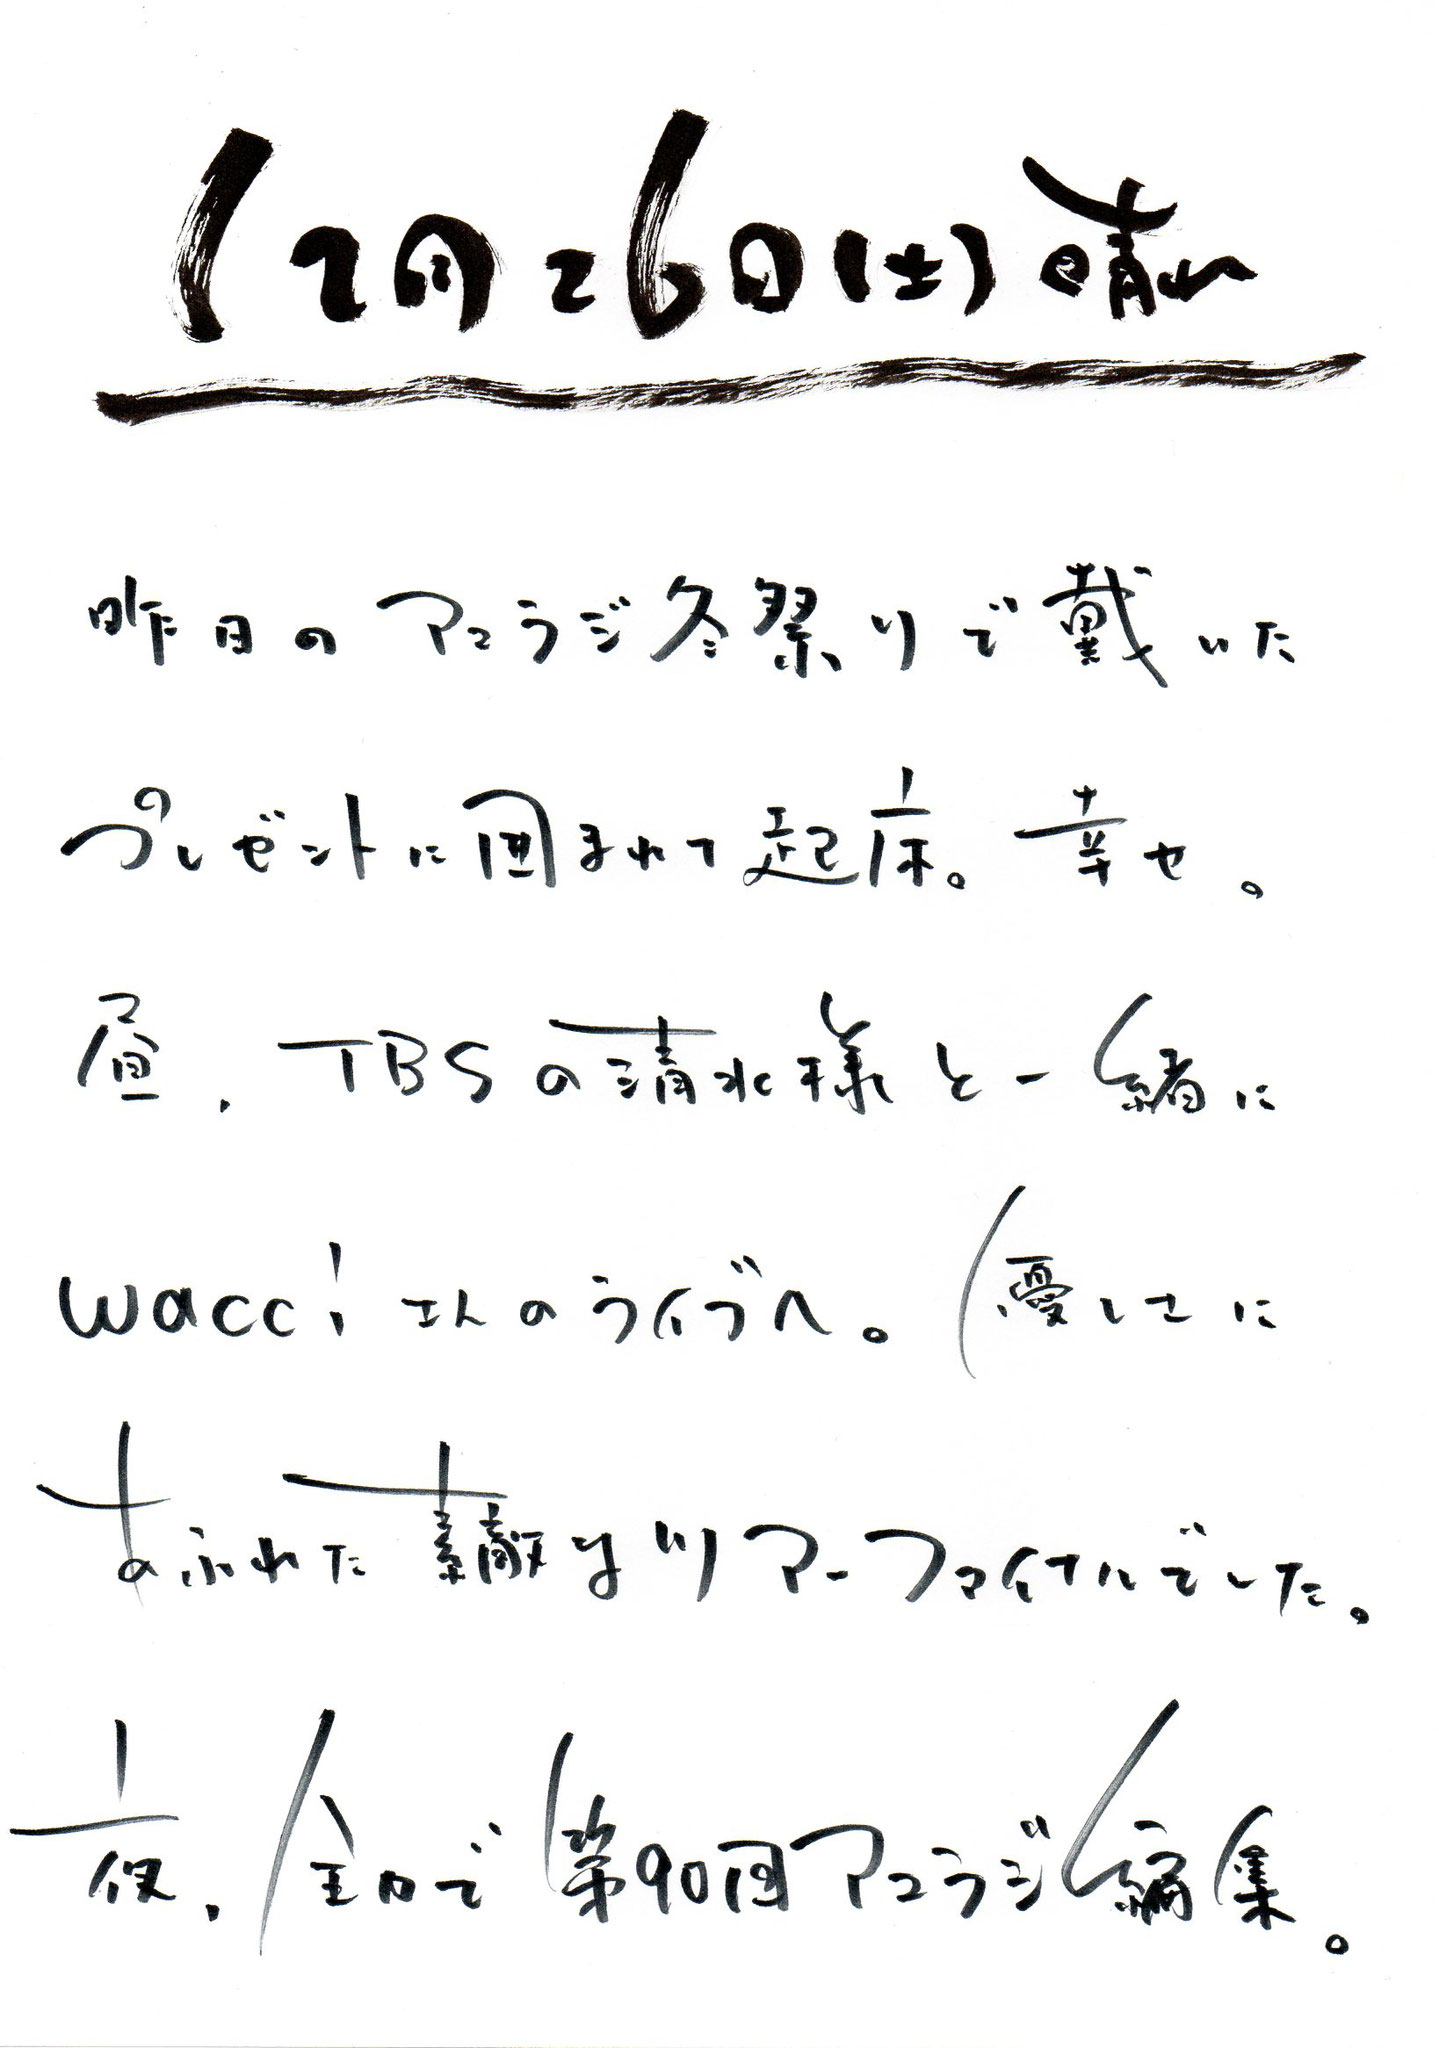 12月26日(土)晴れ
昨日のアコラジ冬祭りで戴いた
プレゼントに囲まれて起床。幸せ。
昼、TBSの清水様と一緒に
wacciさんのライブへ。優しさに
あふれた素敵なツアーファイナルでした。
夜、全力で第90回アコラジ編集。